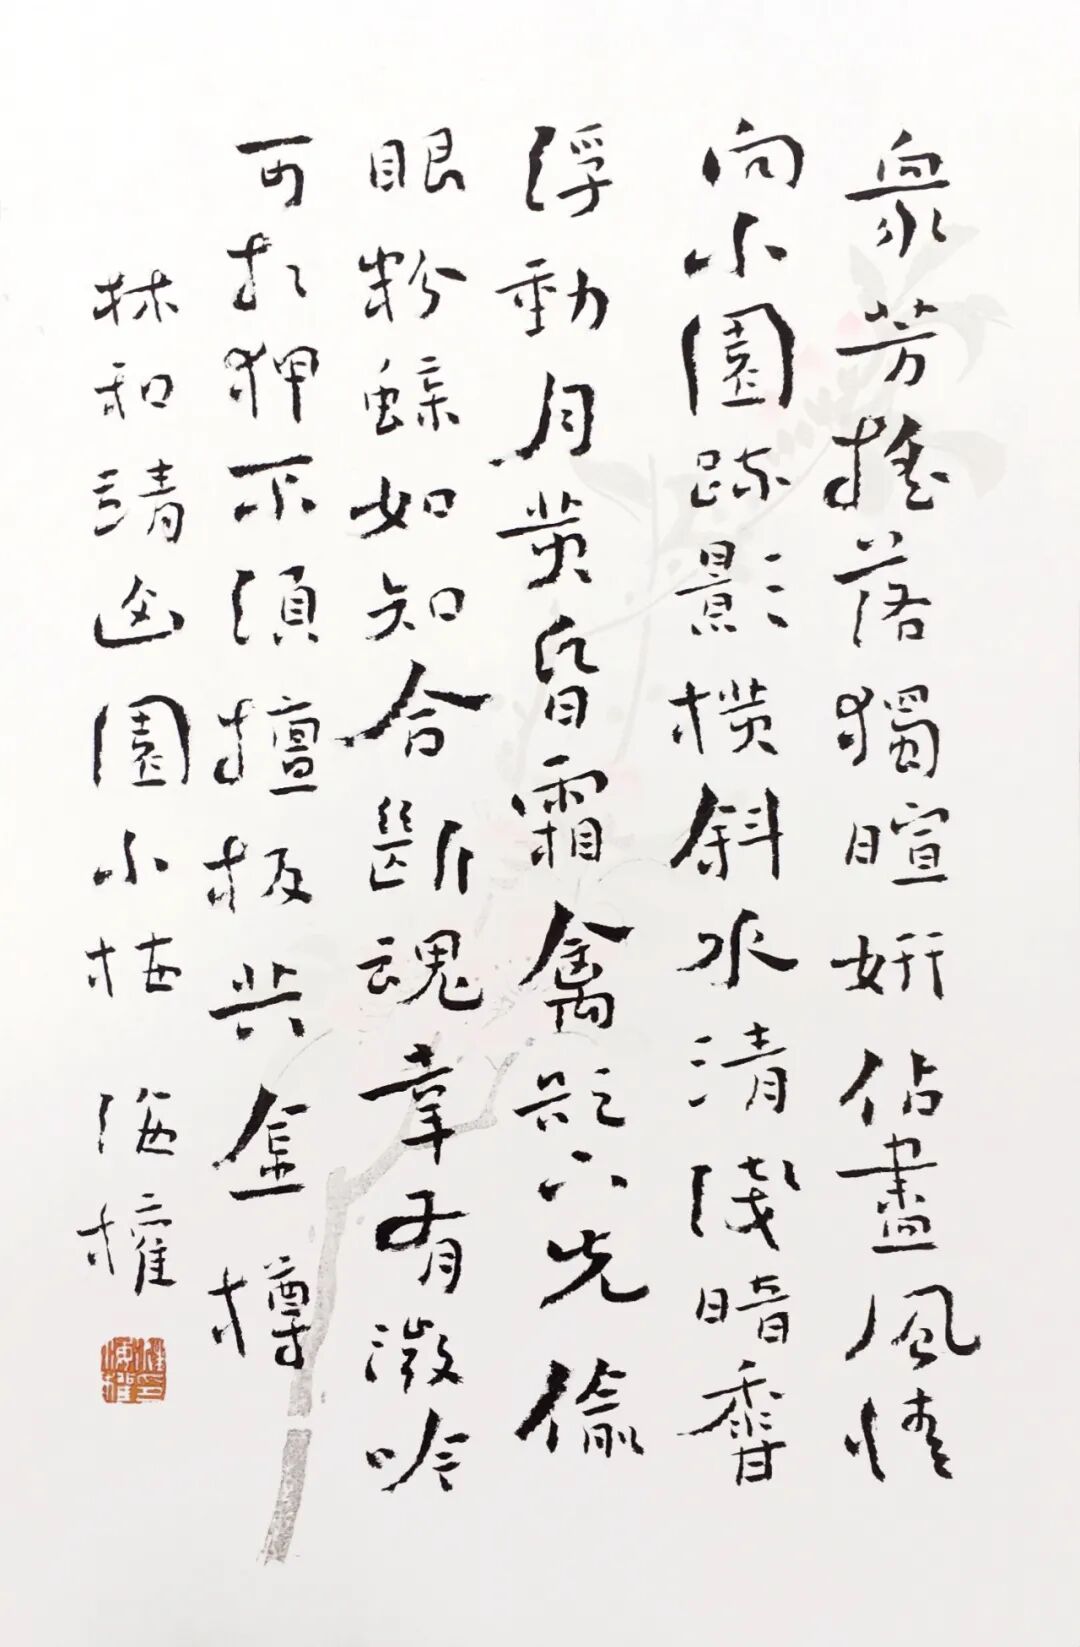 衆芳搖落獨暄妍佔盡風情
向小園疏影橫斜水清淺暗香
浮動月黃昏霜禽欲下先偷
眼粉蝶如知合斷魂幸有微吟
可相狎不須檀板共金樽
林和靖山園小梅 海權